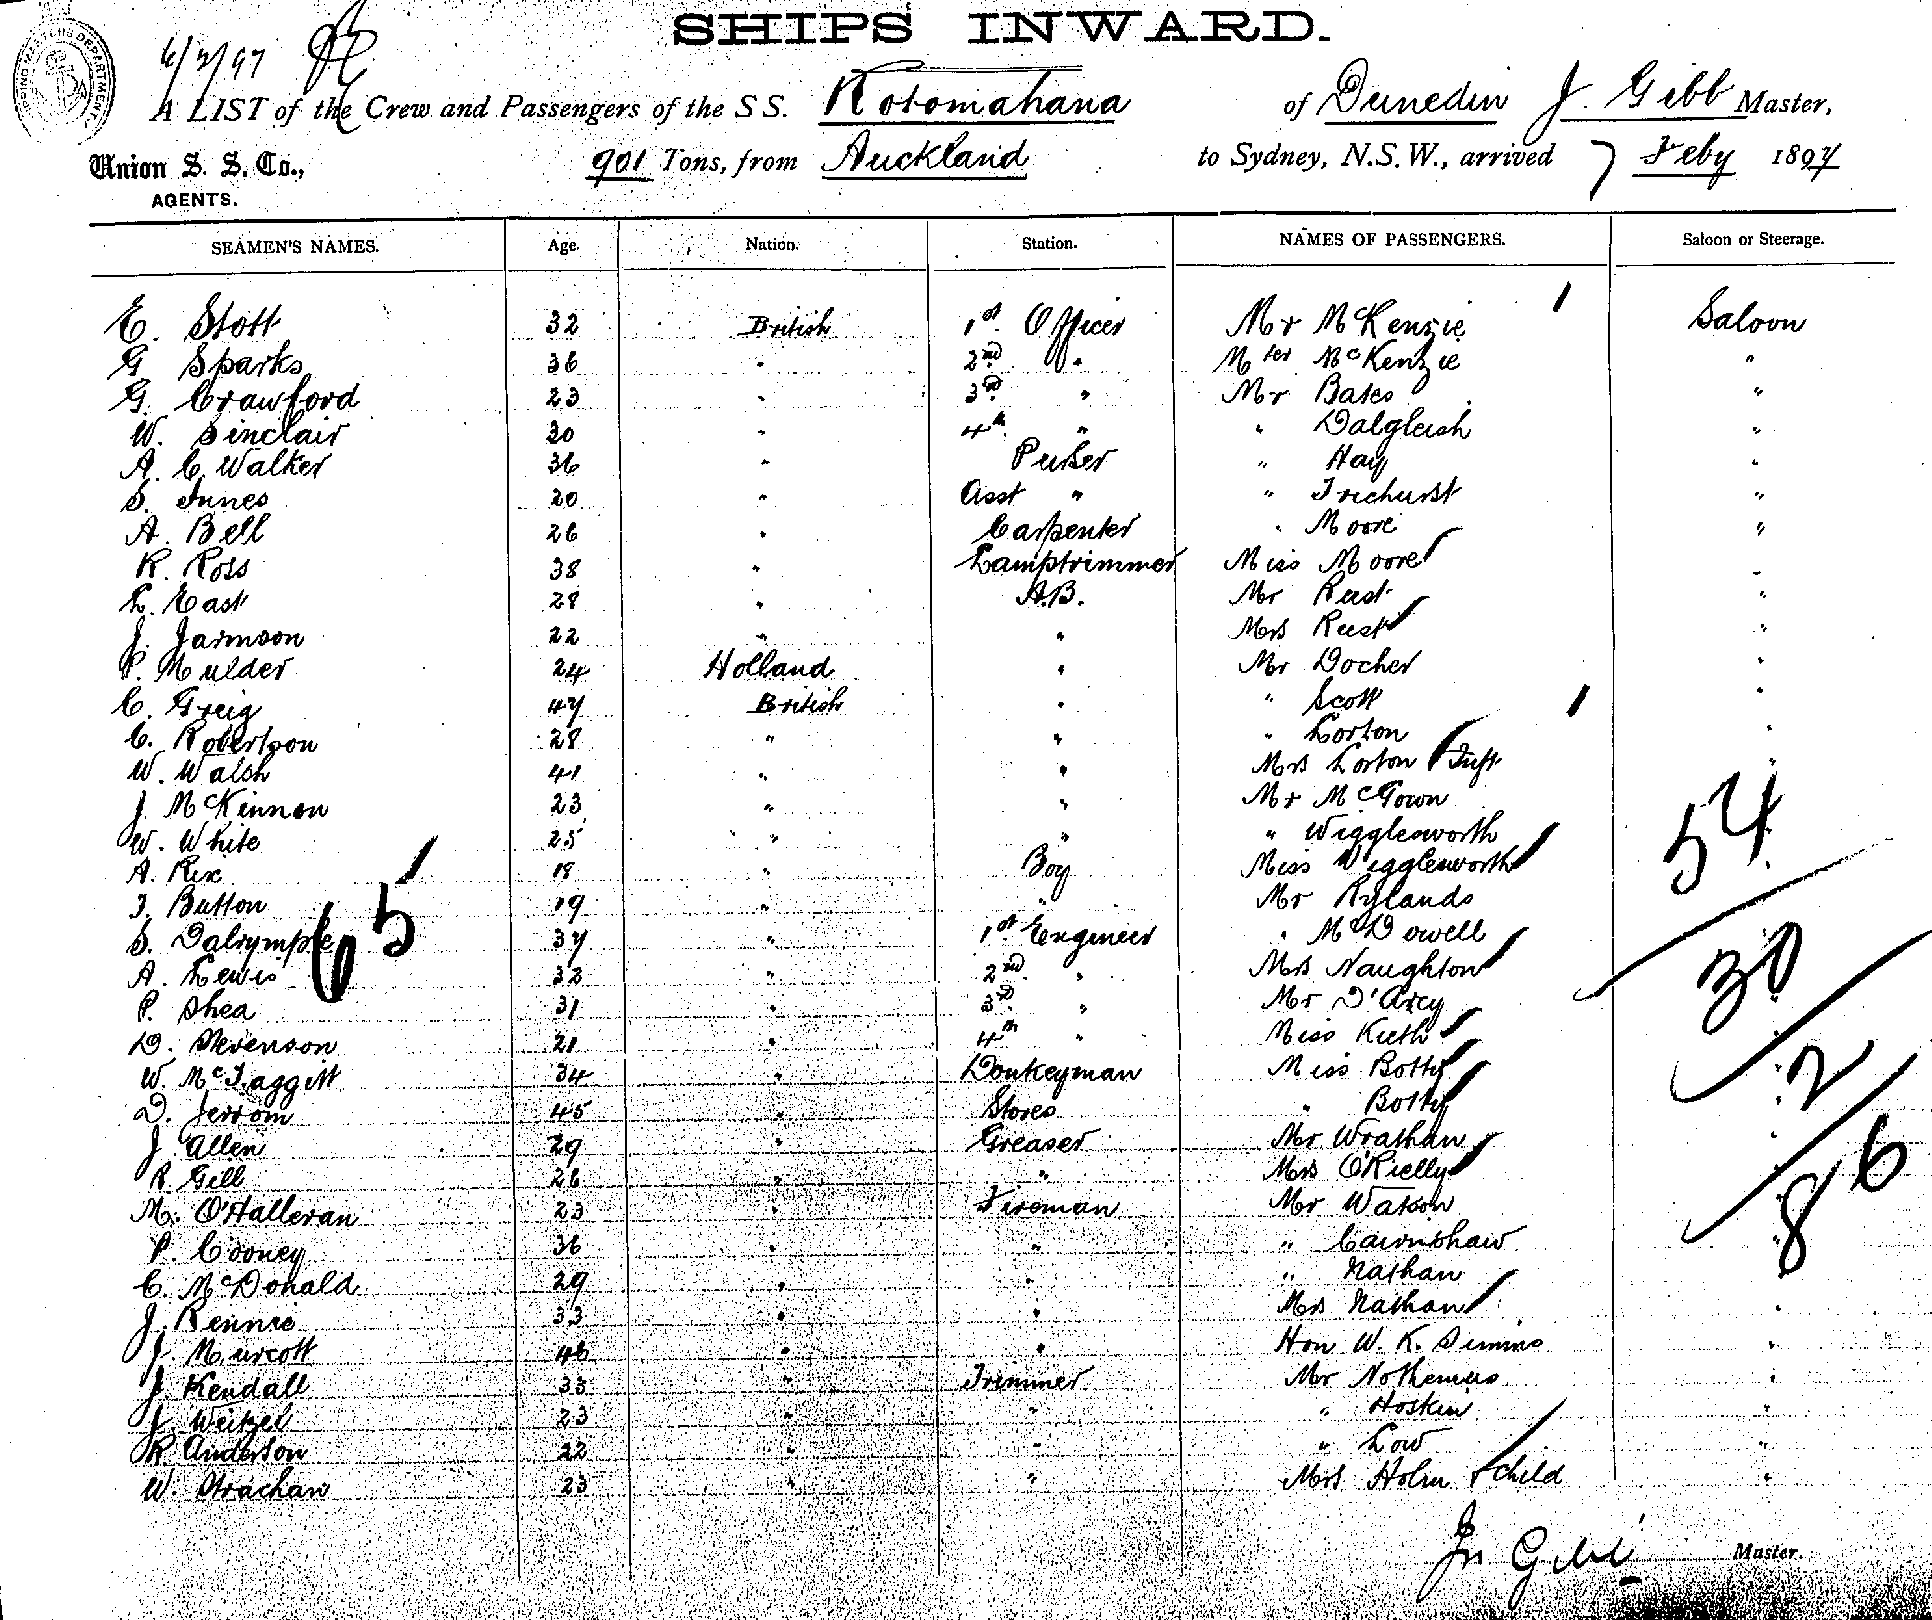 SHIPS INWARD.
6/2/97
A LIST of the Crew and Passengers of the S S. Rotomahana of Dunedin J. Gibb Master,
Union S. S. Co., 901 Tons, from Auckland to Sydney, N.S.W., arrived 7 Feby 1897
AGENTS.
SEAMEN'S NAMES. Age. Nation. Station. NAMES OF PASSENGERS. Saloon or Steerage.
E. Stott 32 British 1st Officer Mr McKenzie Saloon
G Sparks 36 " 2nd " Mster McKenzie "
G. Crawford 23 " 3rd " Mr Bates "
W. Sinclair 30 " 4th " " Dalgleish "
A. C. Walker 36 " Purser " Hay "
S. Innes 20 " Asst " " Ticehurst "
A. Bell 26 " Carpenter " Moore "
R. Ross 38 " Lamptrimmer Miss Moore "
L. East 28 " A.B. Mr Rust "
J. Jarmson 22 " " Mrs Rust "
P. Mulder 24 Holland " Mr Docher "
C. Greig 47 British " " Scott "
C. Robertson 28 " " " Lorton "
W. Walsh 41 " " Mrs Lorton & Inft "
J. McKinnon 23 " " Mr McGown
W. White 25 " " " Wigglesworth 54
A. Rix 18 " Boy Miss Wigglesworth
T. Button 19 " " Mr Rylands
65
S. Dalrymple 37 " 1st Engineer " McDowell
A. Lewis 32 " 2nd " Mrs Naughton 30
P. Shea 31 " 3rd " Mr D'Arcy
D. Stevenson 21 " 4th " Miss Kieth
W. McTaggitt 34 " Donkeyman Miss Botty 2
D. Jerrom 45 " Stores " Botty
J. Allen 29 " Greaser Mr Wrathan
R. Gill 26 " " Mrs O'Rielly 86
M. O'Halleran 23 " Fireman Mr Watson
P. Cooney 36 " " " Cawnshaw
C. McDonald 29 " " " Nathan
J. Rennie 33 " " Mrs Nathan "
J. Murcott 46 " " Hon W. K. Simms "
J. Kendall 33 " Trimmer Mr Nothenius "
J. Weitzel 23 " " " Hoskin "
R Anderson 22 " " " Low "
W. Strachan 23 " " Mrs Holm & child "
Jn Gibb Master.